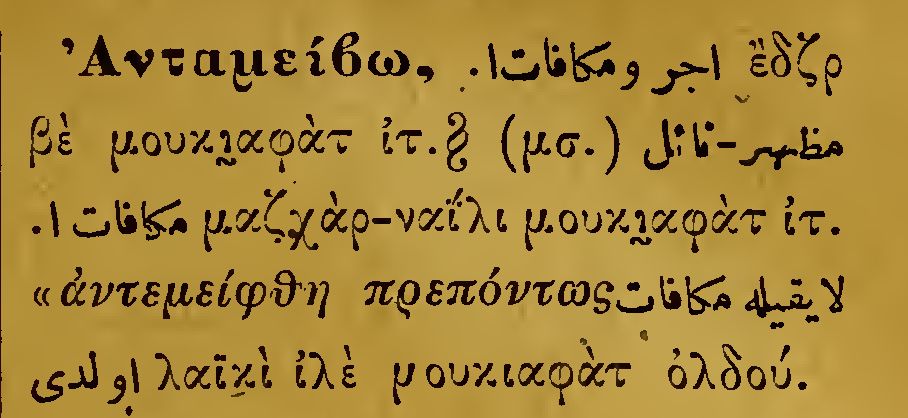 Ἀνταμείβω, اجر و مكافات ا. ἔδζρ
βὲ μουκι̰αφὰτ ἰτ.ȣ (μσ.) مظهر-نائل
مكافات ا. μαζχὰρ-ναΐλι μουκι̰αφὰτ ἰτ.
«ἀντεμείφθη πρεπόντως لايقيله مكافات
اولدى λαϊκὶ ἰλὲ μουκιαφὰτ ὀλδού.